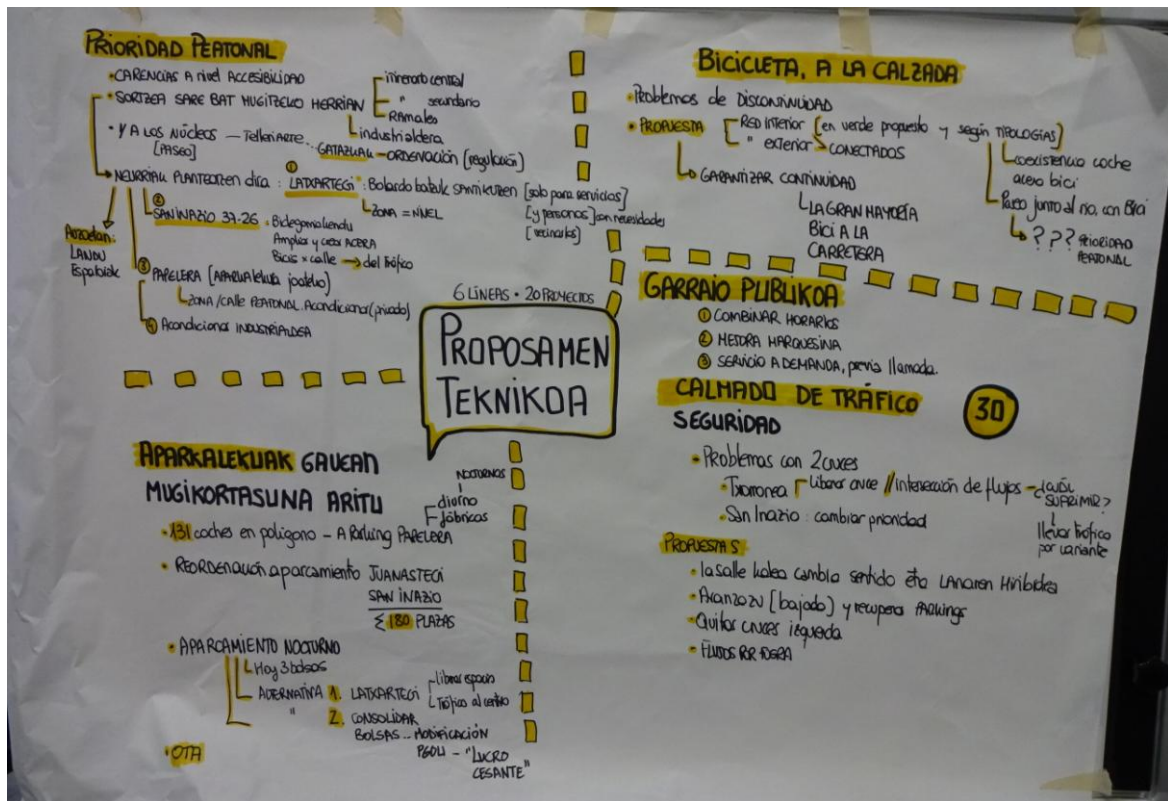 PRIORIDAD PEATONAL
• CARENCIAS A nivel ACCESIBILIDAD
• SORTZEA SARE BAT MUGITZEKO HERRIAN
itinerario central
" secundario
RAMales
industrialdera
• Y A LOS NÚCLEOS — Telleriarte...
[PASEO]
GATAZKAK — ORDENACIÓN [regulación]
NEURRIAK PLANTEATZEN dira :
① LATXARTEGI : Bolardo batzuk [solo para servicios]
[y personas] con necesidades
[vecinarios]
ZONA = NIVEL
② SAN INAZIO 37-26 • Bidegorria kendu
Ampliar y crear ACERA
Bicis x calle → del tráfico
Auzoetan:
LANDU
Espaloiak
③ PAPELERA [APARKALEKUA ]
ZONA/calle PEATONAL. Acondicionar (privado)
④ Acondicionar INDUSTRIALDEA
6 LÍNEAS • 20 PROYECTOS
PROPOSAMEN
TEKNIKOA
BICICLETA, A LA CALZADA
• Problemas de DISCONTINUIDAD
• PROPUESTA
RED INTERIOR [en verde propuesto y según TIPOLOGÍAS]
" exterior > CONECTADOS
coexistencia coche
acera bici
Paseo junto al río, con Bici
? ? ? PRIORIDAD
PEATONAL
GARANTIZAR CONTINUIDAD
LA GRAN MAYORÍA
BICI A LA
CARRETERA
GARRAIO PUBLIKOA
① COMBINAR HORARIOS
② MEJORA MARQUESINA
③ SERVICIO A DEMANDA, previa llamada.
CALMADO DE TRÁFICO
30
SEGURIDAD
• Problemas con 2 cruces
• Txorronea Liberar cruce // intersección de flujos — ¿CUÁL
SUPRIMIR?
llevar tráfico
por variante
• San Inazio : cambiar prioridad
PROPUESTAS
• la salle kalea cambia sentido eta LANAREN Hiribidea
• Aranzazu [bajada] y recupera PARKINGS
• Quitar cruces izquierda
• FLUJOS POR FUERA
APARKALEKUAK GAUEAN
MUGIKORTASUNA ARITU
NOCTURNOS
diurno
fábricas
• 131 coches en polígono — A Parking PAPELERA
• REORDENACIÓN aparcamiento JUANASTEGI
SAN INAZIO
Σ 180 PLAZAS
• APARCAMIENTO NOCTURNO
Hay 3 bolsas
ALTERNATIVA 1. LATXARTEGI
liberar espacio
Tráfico al centro
" 2. CONSOLIDAR
BOLSAS... MODIFICACIÓN
PGOU — "LUCRO
CESANTE"
• OTA